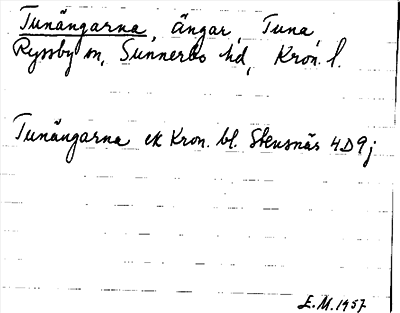 Tunängarna, ängar, Tuna,
Ryssby sn, Sunnerbo hd, Kron. l.
Tunängarna ek Kron. bl. Stensnäs 4D9j
E.M. 1957